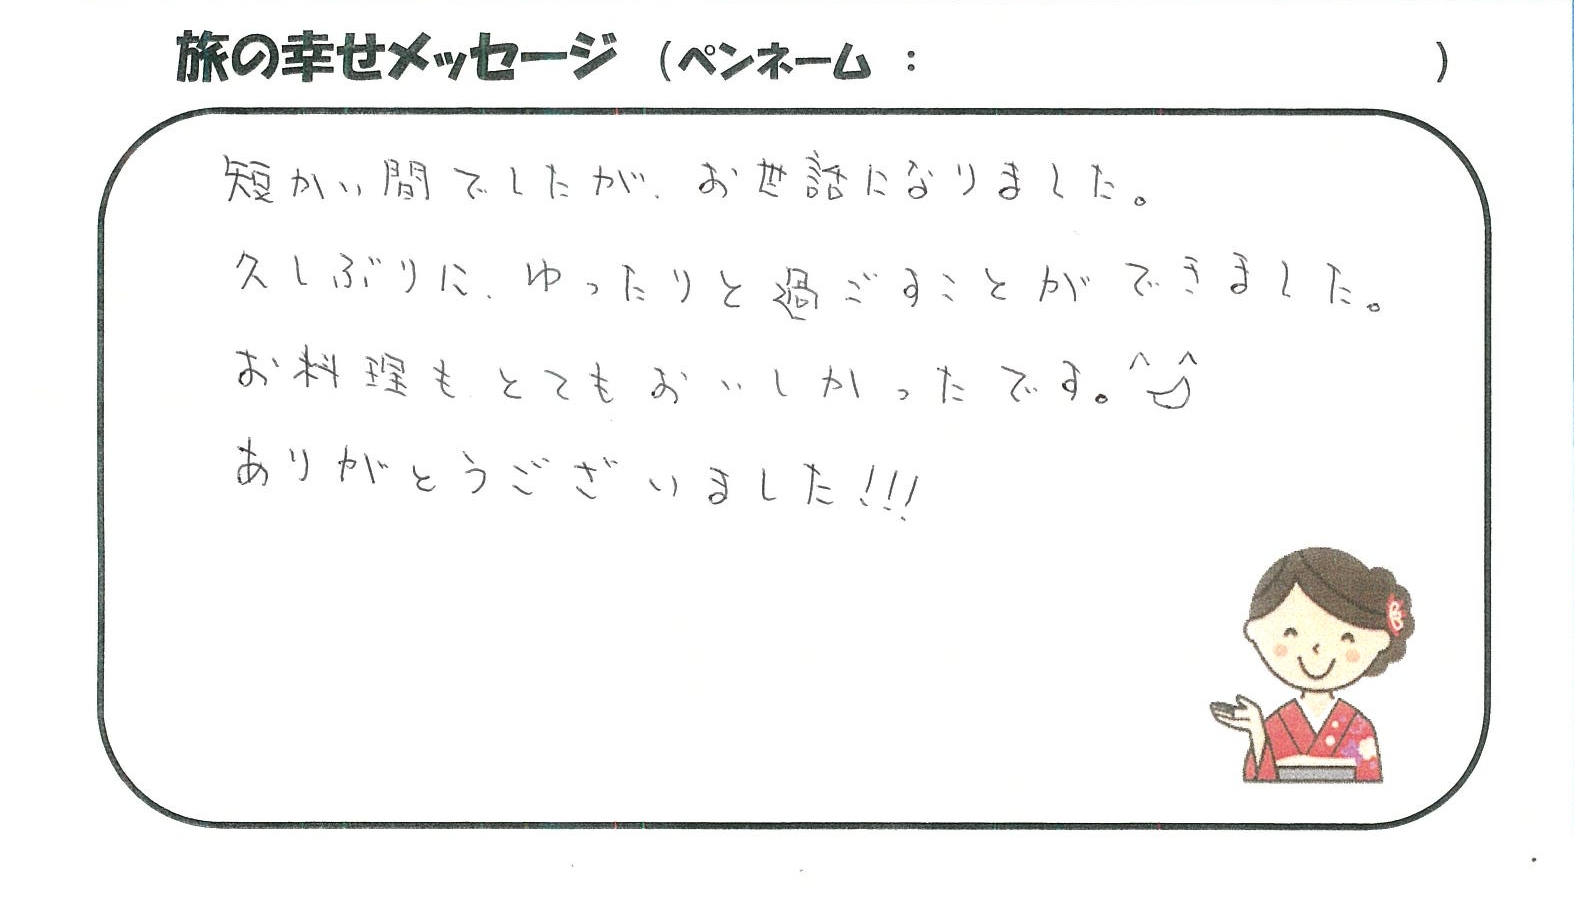 旅の幸せメッセージ (ペンネーム : )
短かい間でしたが、お世話になりました。
久しぶりに、ゆったりと過ごすことができました。
お料理も、とてもおいしかったです。^^
ありがとうございました!!!